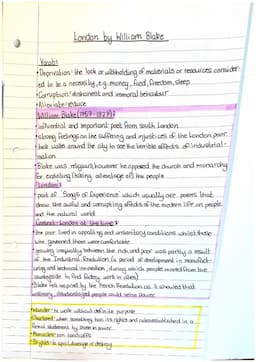 London by William Blake
Vocab:
• Deprivation: the lack or withholding of materials or resources consider-
ed to be a necessity, e.g. money, food, freedom, sleep
• Corruption: dishonest and immoral behaviour
• Alleviate: reduce
William Blake (1757-1827):
• influential and important poet from south London
• strong feelings on the suffering and injustices of the London poor
• took walks around the city to see the terrible effects of industrial-
isation
• Blake was religious, however he opposed the church and monarchy
for exploiting (taking advantage of) the people
London:
• part of 'Songs of Experience' which usually are poems that
show the awful and corrupting effects of the modern life on people
and the natural world
Context: London at the time:
• the poor lived in appalling and unsanitary conditions whilst those
who governed them were comfortable
• growing inequality between the rich and poor was partly a result
of the Industrial Revolution (a period of development in manufact-
uring and technical innovation, during which people moved from the
countryside to find factory work in cities)
• Blake felt inspired by the French Revolution as it showed that
ordinary, disadvantaged people could seize power
• Wander: to walk without definite purpose
• Chartered: when something has its rights and rules established in a
formal statement by those in power
• Manacles: iron handcuffs
• Blights: to spoil, damage or destroy